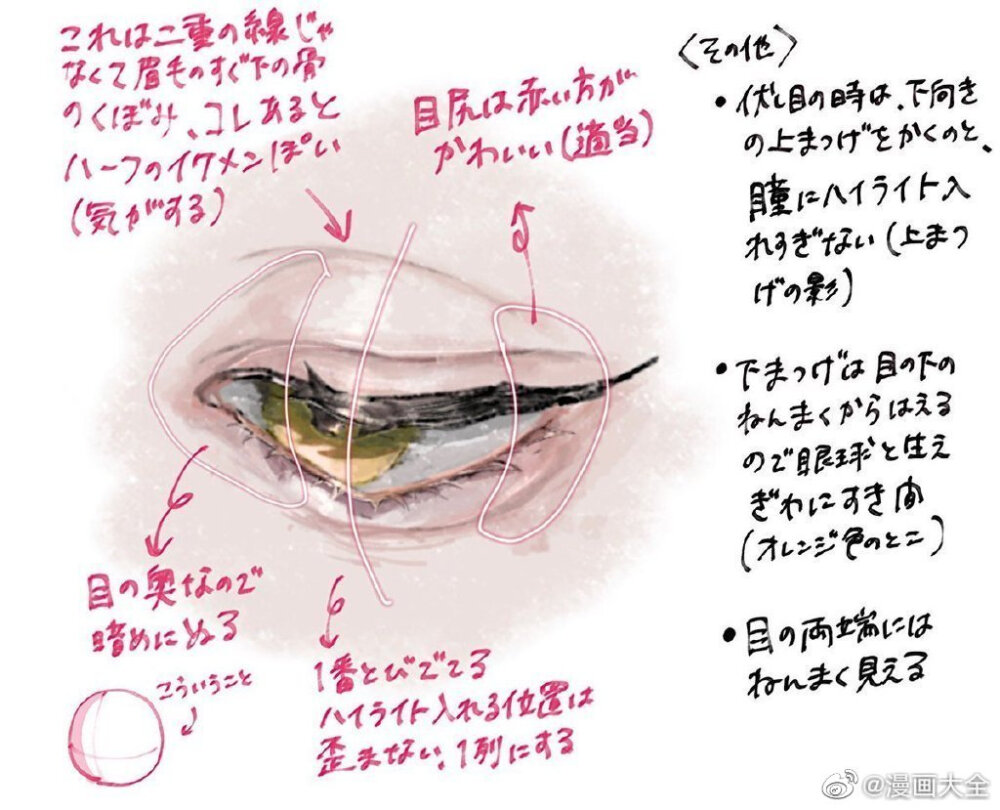 これは二重の線じゃ
なくて眉毛のすぐ下の骨
のくぼみ、コレあると
ハーフのイケメンぽい
(気がする)
目尻は赤い方が
かわいい(適当)
目の奥なので
暗めにぬる
こういうこと
1番とびでてる
ハイライト入れる位置は
歪まない、1列にする
〈その他〉
・伏し目の時は、下向き
の上まつげをかくのと、
瞳にハイライト入
れすぎない(上まつ
げの影)
・下まつげは目の下の
ねんまくからはえる
ので眼球と生え
ぎわにすき間
(オレンジ色のとこ)
・目の両端には
ねんまく見える
@漫画大全